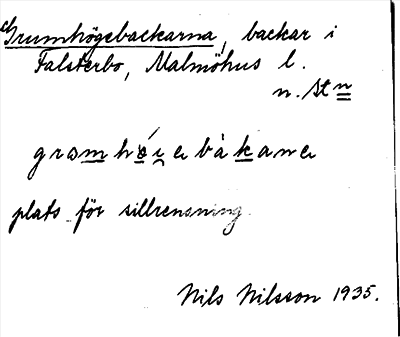 Grumhögebackarna, backar i
Falsterbo, Malmöhus l.
n. St n
plats för sillrensning
Nils Nilsson 1935.